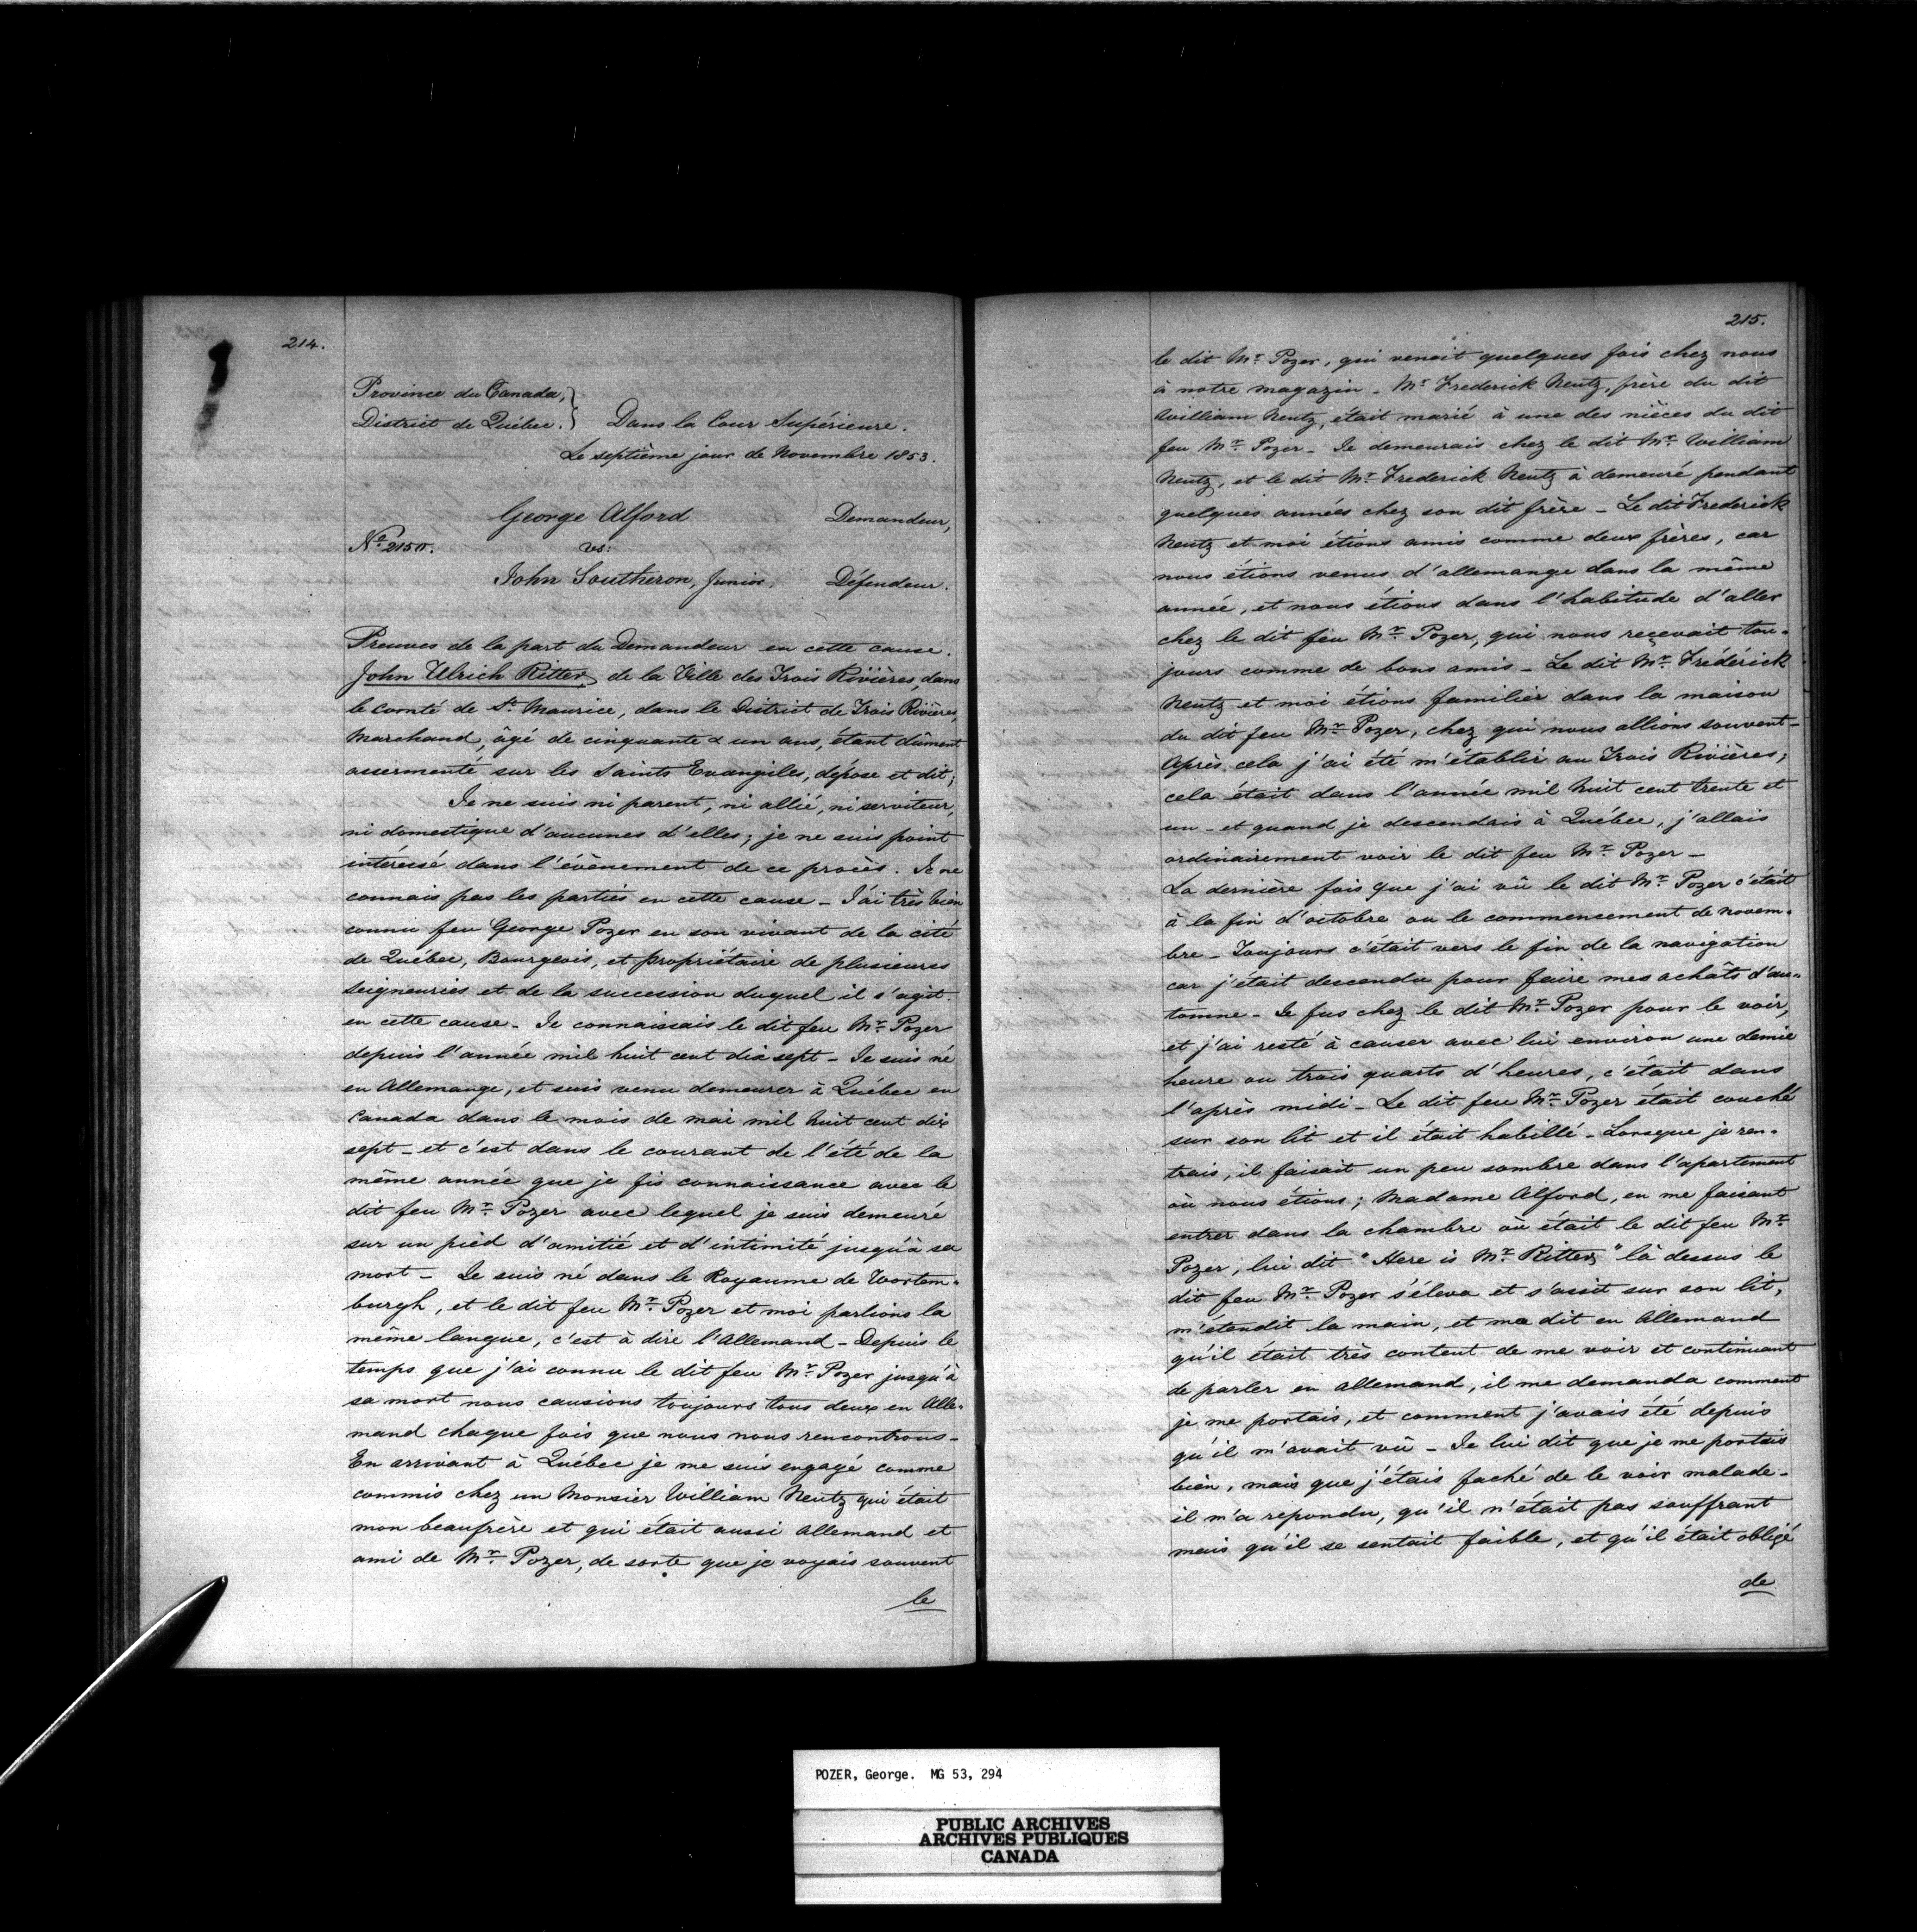 214.
Province du Canada,
District de Québec. } Dans la Cour Supérieure.
Le septième jour de Novembre 1853.
George Alford Demandeur,
vs:
John Southeron, Junior, Défendeur.
Preuves de la part du Demandeur en cette cause.
John Ulrich Ritter, de la Ville des Trois Rivières, dans
le Comté de St. Maurice, dans le District de Trois Rivières,
Marchand, âgé de cinquante & un ans, étant dûment
assermenté sur les Saints Evangiles, dépose et dit;
Je ne suis ni parent, ni allié, ni serviteur,
ni domestique d'aucunes d'elles; je ne suis point
intéressé dans l'évènement de ce procès. Je ne
connais pas les parties en cette cause - J'ai très bien
connu feu George Pozer en son vivant de la cité
de Québec, Bourgeois, et propriétaire de plusieures
seigneuries et de la succession duquel il s'agit
en cette cause - Je connaissais le dit feu Mr. Pozer
depuis l'année mil huit cent dix sept - Je suis né
en Allemange, et suis venu demeurer à Québec en
Canada dans le mois de mai mil huit cent dix
sept - et c'est dans le courant de l'été de la
même année que je fis connaissance avec le
dit feu Mr. Pozer avec lequel je suis demeuré
sur un pièd d'amitié et d'intimité jusqu'à sa
mort - Je suis né dans le Royaume de Wortem-
burgh, et le dit feu Mr. Pozer et moi parlions la
même langue, c'est à dire l'Allemand - Depuis le
temps que j'ai connu le dit feu Mr. Pozer jusqu'à
sa mort nous causions toujours tous deux en Alle-
mand chaque fois que nous nous rencontrons -
En arrivant à Québec je me suis engagé comme
commis chez un Monsier William Neutz qui était
mon beaufrère et qui était aussi Allemand et
ami de Mr. Pozer, de sorte que je voyais souvent
le
215.
le dit Mr. Pozer, qui venait quelques fois chez nous
à notre magazin - Mr. Frederick Neutz, frère du dit
William Neutz, était marié à une des nièces du dit
feu Mr. Pozer - Je demeurais chez le dit Mr. William
Neutz, et le dit Mr. Frederick Neutz à demeuré pendant
quelques années chez son dit frère - Le dit Frederick
Neutz et moi étions amis comme deux frères, car
nous étions venus d'allemange dans la même
année, et nous étions dans l'habitude d'aller
chez le dit feu Mr. Pozer, qui nous reçevait tou-
jours comme de bons amis - Le dit Mr. Fréderick
Neutz et moi étions familier dans la maison
du dit feu Mr. Pozer, chez qui nous allions souvent -
Après cela j'ai été m'établir au Trois Rivières;
cela était dans l'année mil huit cent trente et
un - et quand je descendais à Québec, j'allais
ordinairement voir le dit feu Mr. Pozer -
La dernière fois que j'ai vû le dit Mr. Pozer c'était
à la fin d'octobre ou le commensement de novem-
bre - Toujours c'était vers le fin de la navigation
car j'était descendu pour faire mes achâts d'au-
tomne - Je fus chez le dit Mr. Pozer pour le voir,
et j'ai resté à causer avec lui environ une demie
heure ou trois quarts d'heures, c'était dans
l'après midi - Le dit feu Mr. Pozer était couché
sur son lit et il était habillé - Lorsque je ren-
trais, il faisait un peu sombre dans l'apartement
où nous étions; Madame Alford, en me faisant
entrer dans la chambre où était le dit feu Mr.
Pozer, lui dit "Here is Mr. Ritter" là dessus le
dit feu Mr. Pozer s'éleva et s'assit sur son lit,
m'étendit la main, et me dit en Allemand
qu'il était très content de me voir et continuant
de parler en allemand, il me demanda comment
je me portais, et comment j'avais été depuis
qu'il m'avait vû - Je lui dit que je me portais
bien, mais que j'étais faché de le voir malade -
il m'a repondu, qu'il n'était pas souffrant
mais qu'il se sentait faible, et qu'il était obligé
de
POZER, George. MG 53, 294
PUBLIC ARCHIVES
ARCHIVES PUBLIQUES
CANADA